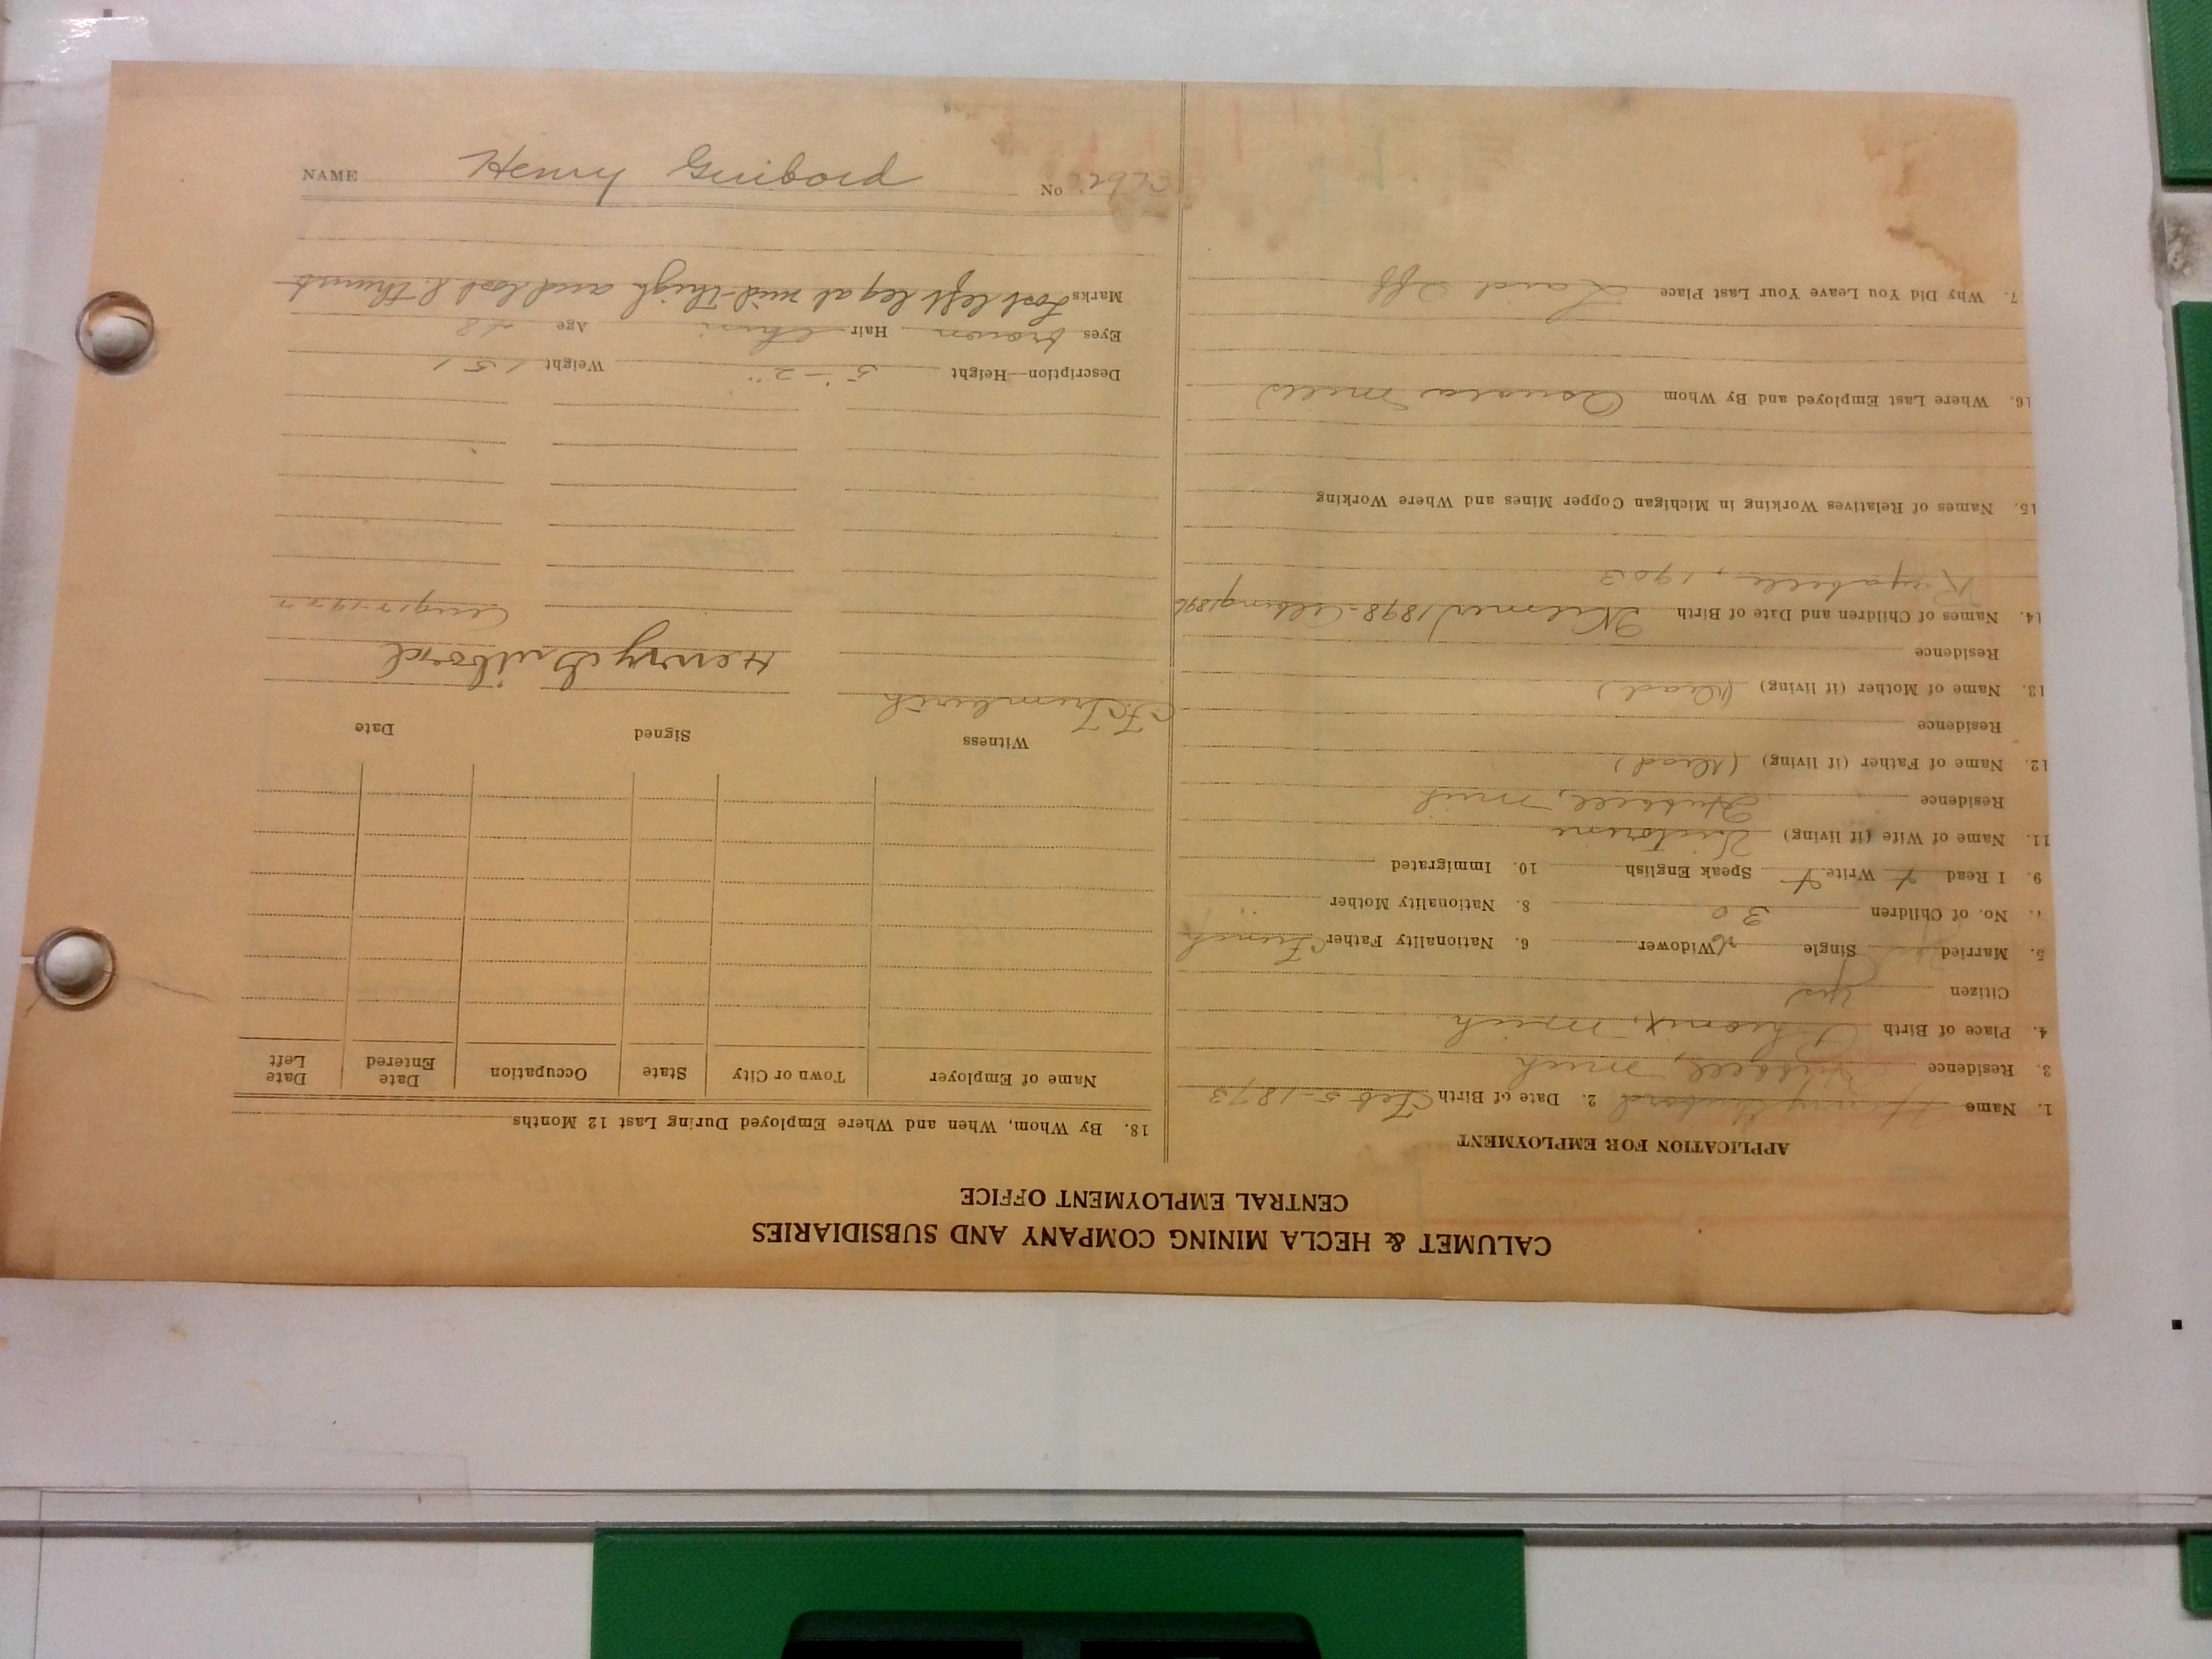 CALUMET & HECLA MINING COMPANY AND SUBSIDIARIES
CENTRAL EMPLOYMENT OFFICE
APPLICATION FOR EMPLOYMENT
1. Name Henry Guibord 2. Date of Birth Feb 5-1873
3. Residence Hubbell, Mich
4. Place of Birth Phoenix, Mich
Citizen Yes
5. Married Single Widower 6. Nationality Father French
7. No. of Children 3 8. Nationality Mother "
9. I Read Write Speak English 10. Immigrated
11. Name of Wife (if living) Victorine
Residence Hubbell, Mich
12. Name of Father (if living) (Dead)
Residence
13. Name of Mother (if living) (Dead)
Residence
14. Names of Children and Date of Birth 1898
1903
15. Names of Relatives Working in Michigan Copper Mines and Where Working
16. Where Last Employed and By Whom Mills
7. Why Did You Leave Your Last Place Laid Off
18. By Whom, When and Where Employed During Last 12 Months
Name of Employer Town or City State Occupation Date Entered Date Left
Witness Signed Date
Henry Guibord
Description—Height 5'-2" Weight 151
Eyes brown Hair Age 48
Marks Lost left leg at mid-thigh and lost l. thumb
NAME Henry Guibord No